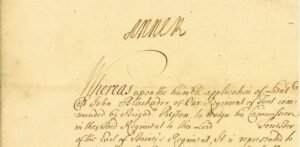 ANNE R
Whereas upon the humble application of Lieut
Coll John Blackader of Our Regiment of Foot com
manded by Brigdr Preston, to resign his Commission
in the said Regiment to the Lord
of the Earl of Stair's Regiment, It is represented to